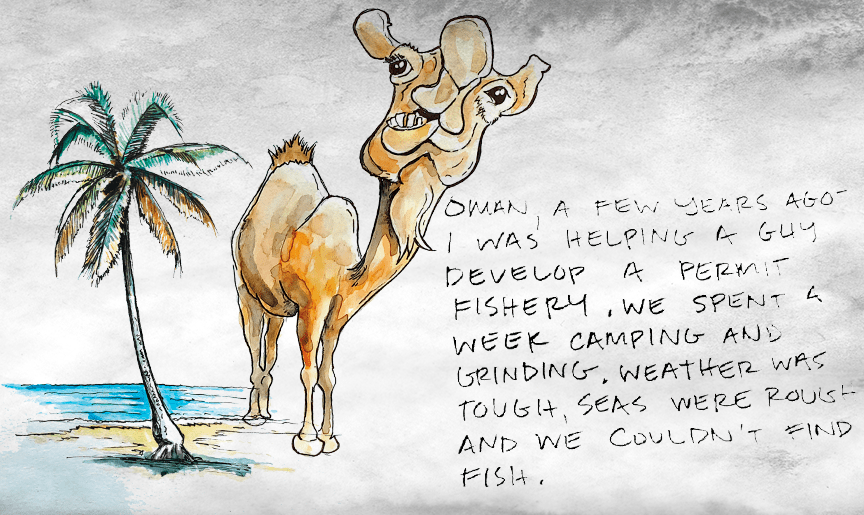 OMAN, A FEW YEARS AGO-
I WAS HELPING A GUY
DEVELOP A PERMIT
FISHERY. WE SPENT A
WEEK CAMPING AND
GRINDING. WEATHER WAS
TOUGH, SEAS WERE ROUGH
AND WE COULDN'T FIND
FISH.